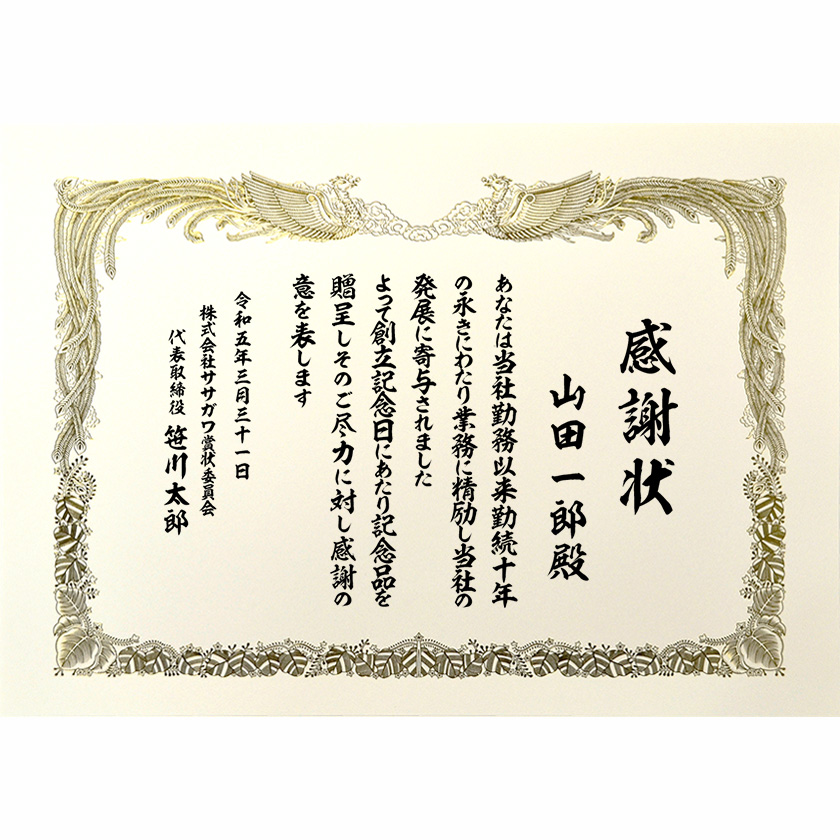 感謝状
山田一郎殿
あなたは当社勤務以来勤続十年
の永きにわたり業務に精励し当社の
発展に寄与されました
よって創立記念日にあたり記念品を
贈呈しそのご尽力に対し感謝の
意を表します
令和五年三月三十一日
株式会社ササガワ賞状委員会
代表取締役 笹川太郎